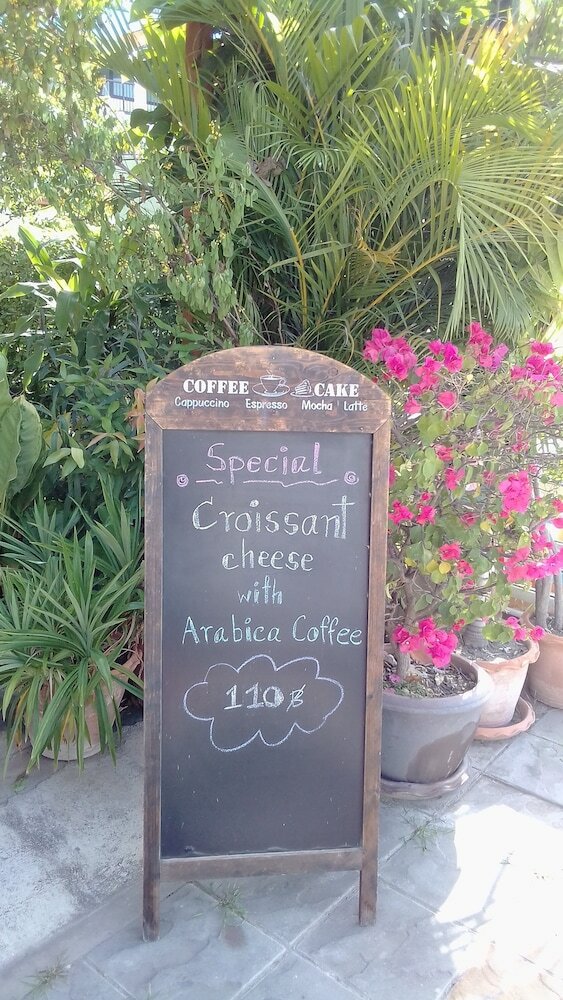 COFFEE CAKE
Cappuccino Espresso Mocha Latte
Special
Croissant
cheese
with
Arabica Coffee
110฿